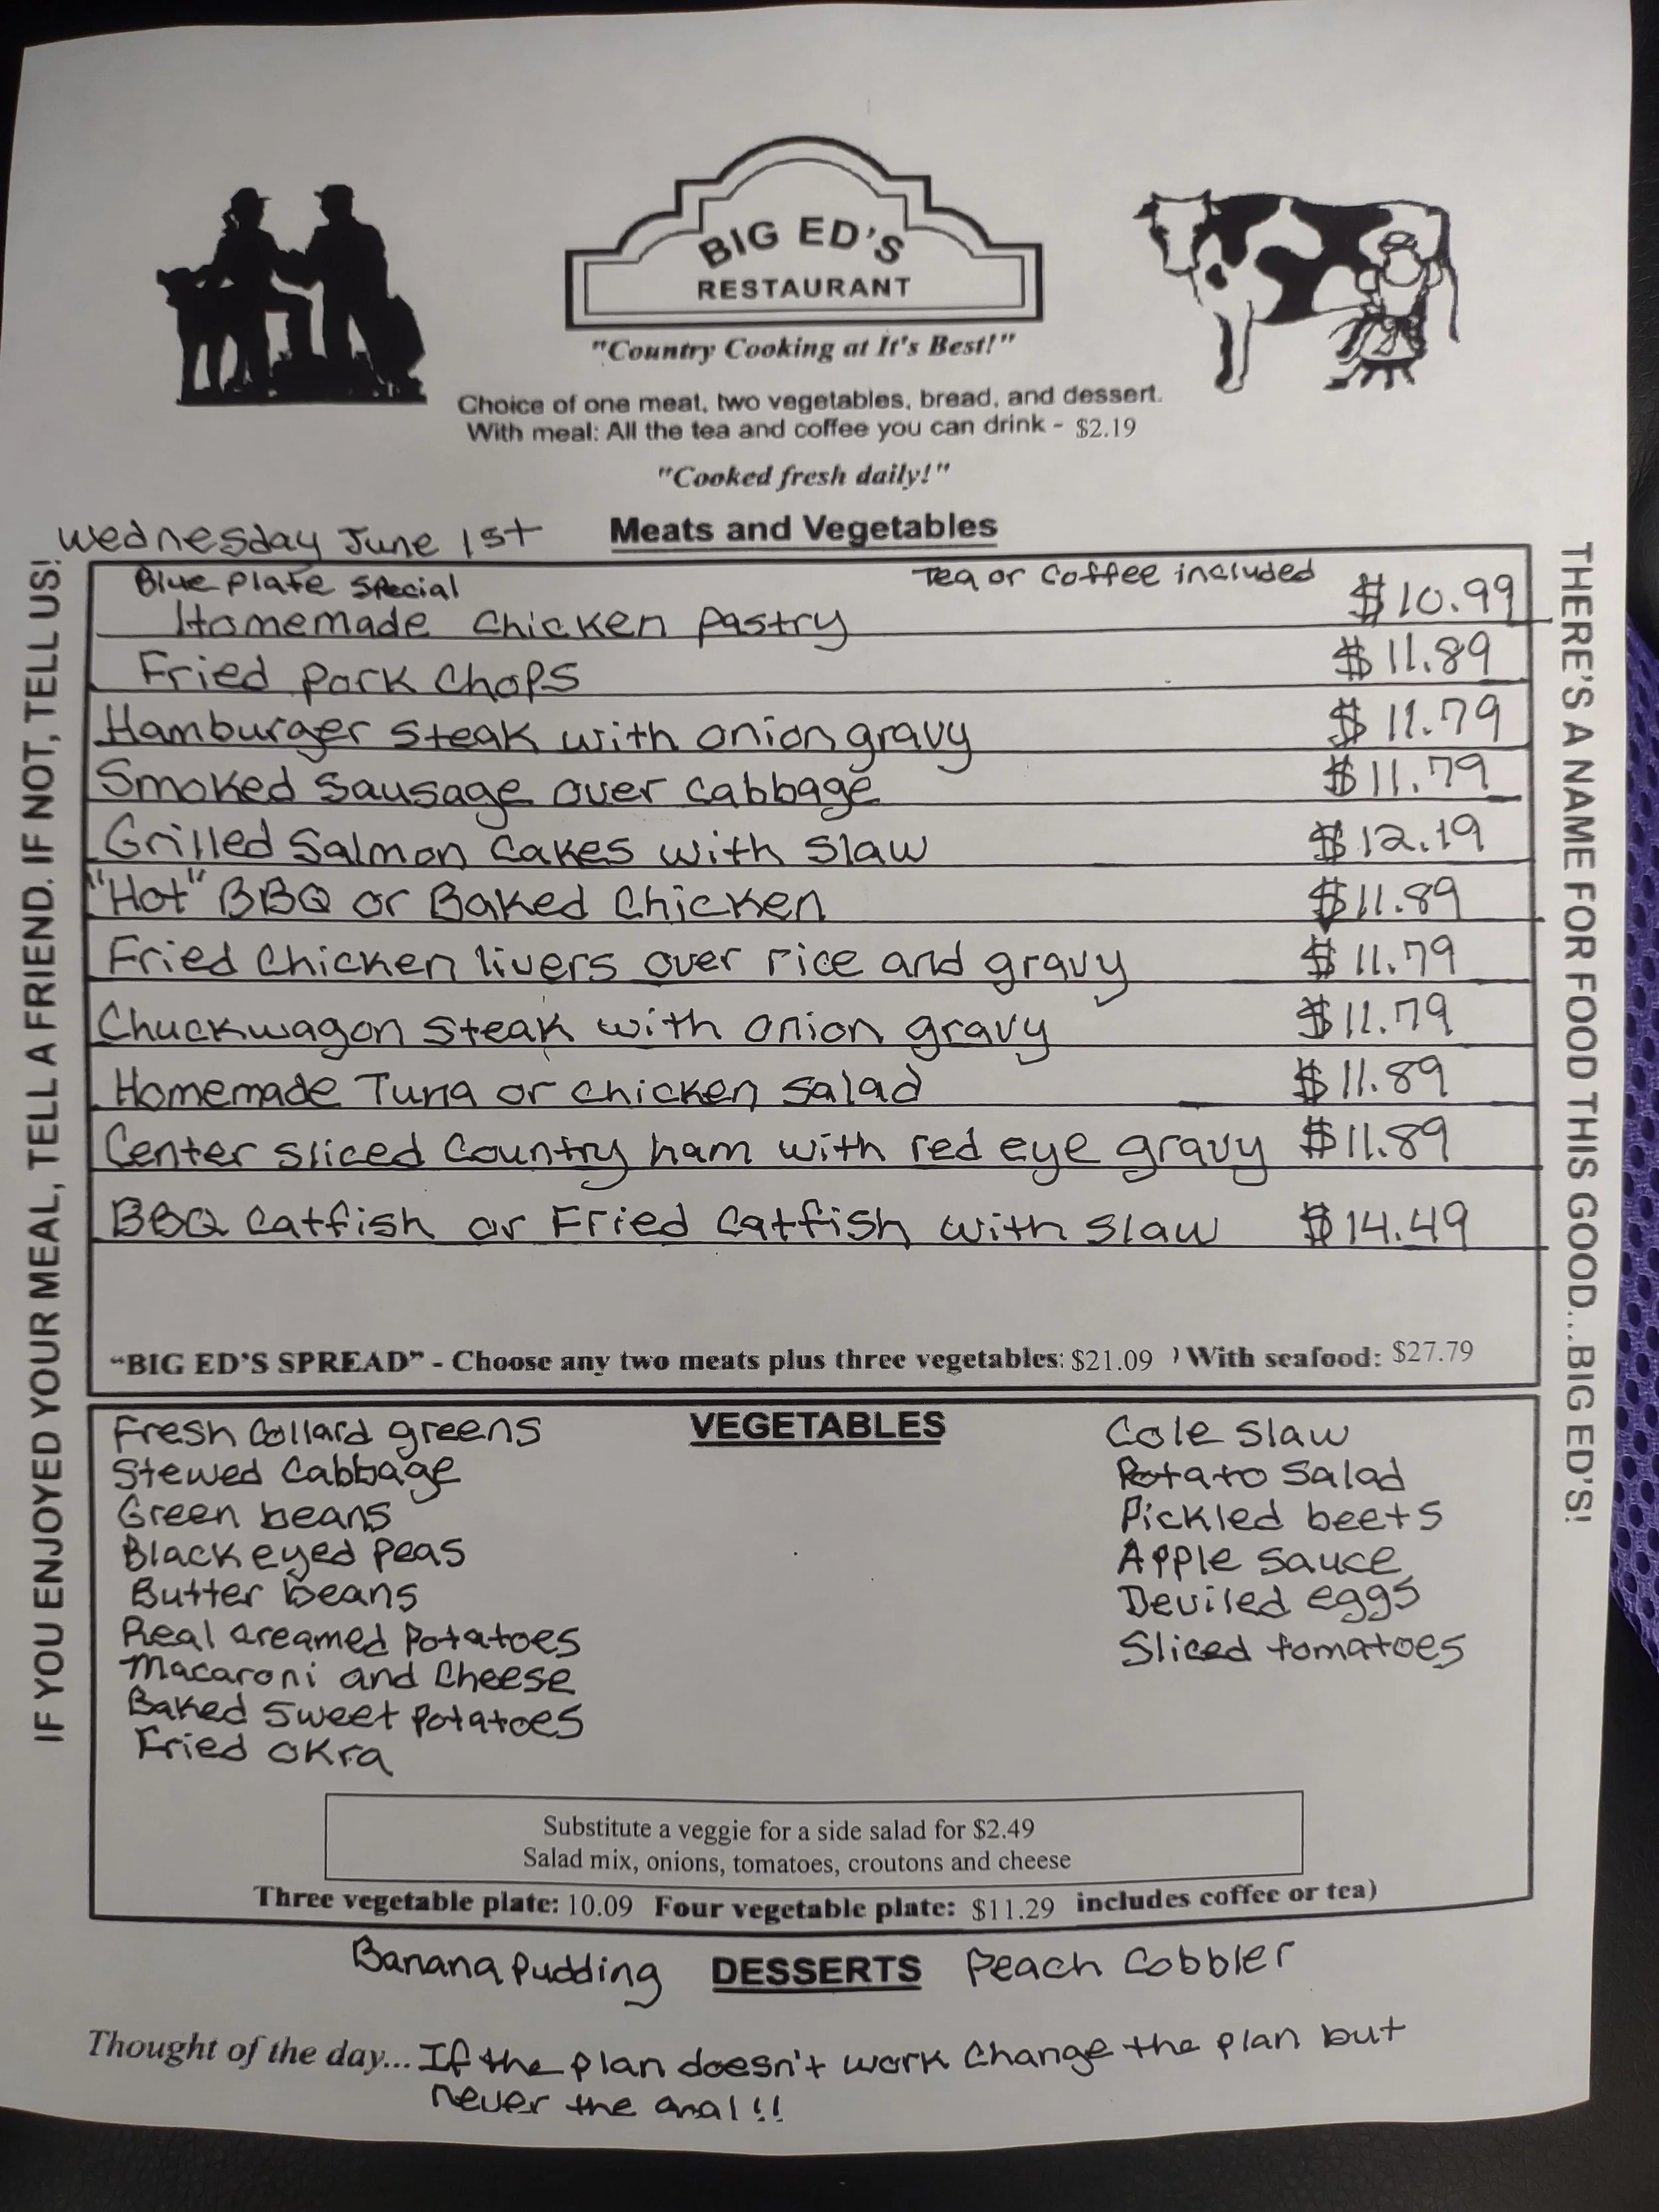 BIG ED'S
RESTAURANT
"Country Cooking at It's Best!"
Choice of one meat, two vegetables, bread, and dessert.
With meal: All the tea and coffee you can drink - $2.19
"Cooked fresh daily!"
Wednesday June 1st
Meats and Vegetables
Blue Plate Special Tea or Coffee included
Homemade Chicken Pastry $10.99
Fried Pork Chops $11.89
Hamburger Steak with onion gravy $11.79
Smoked Sausage over cabbage $11.79
Grilled Salmon Cakes with slaw $12.19
"Hot" BBQ or Baked Chicken $11.89
Fried Chicken livers over rice and gravy $11.79
Chuckwagon Steak with onion gravy $11.79
Homemade Tuna or chicken salad $11.89
Center sliced Country ham with red eye gravy $11.89
BBQ Catfish or Fried Catfish with slaw $14.49
"BIG ED'S SPREAD" - Choose any two meats plus three vegetables: $21.09 ) With seafood: $27.79
VEGETABLES
Fresh Collard greens
Stewed Cabbage
Green beans
Black eyed peas
Butter beans
Real creamed Potatoes
Macaroni and Cheese
Baked Sweet Potatoes
Fried okra
Cole Slaw
Potato Salad
Pickled beets
Apple sauce
Deviled eggs
Sliced tomatoes
Substitute a veggie for a side salad for $2.49
Salad mix, onions, tomatoes, croutons and cheese
Three vegetable plate: 10.09 Four vegetable plate: $11.29 includes coffee or tea)
Banana Pudding DESSERTS Peach Cobbler
Thought of the day... If the plan doesn't work Change the plan but
never the goal!!
IF YOU ENJOYED YOUR MEAL, TELL A FRIEND. IF NOT, TELL US!
THERE'S A NAME FOR FOOD THIS GOOD...BIG ED'S!